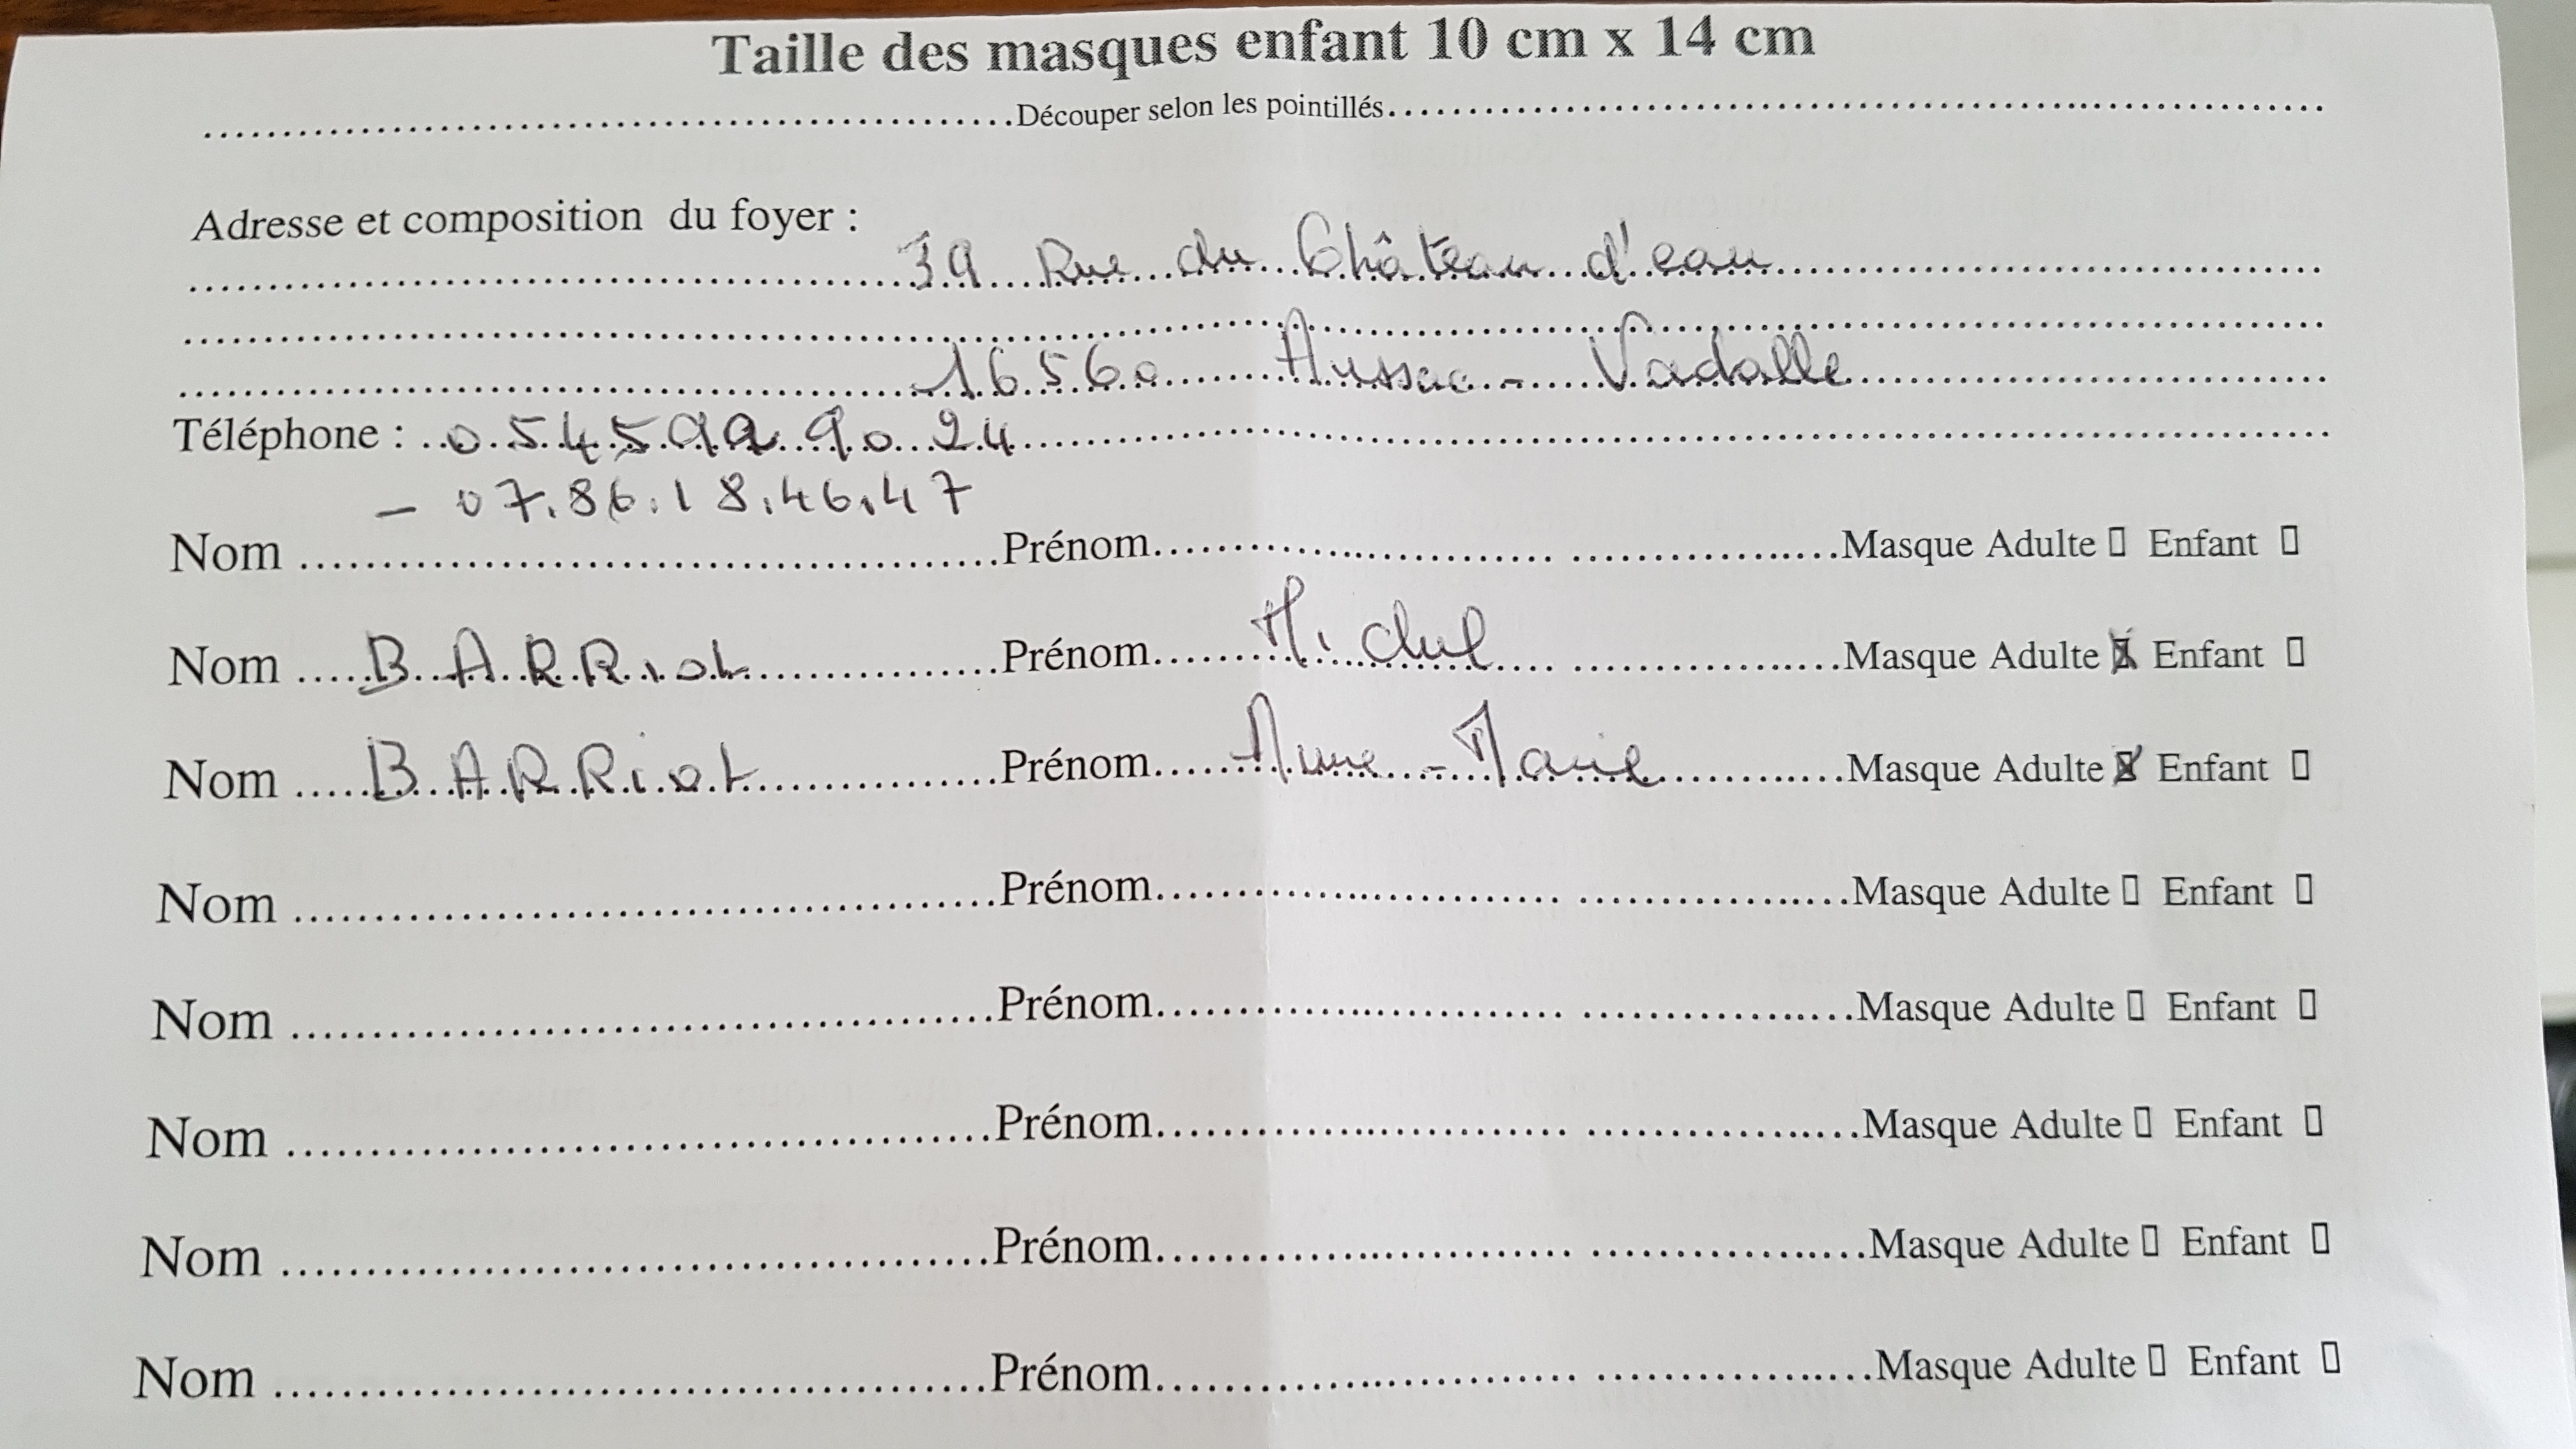 Taille des masques enfant 10 cm x 14 cm
Découper selon les pointillés
Adresse et composition du foyer :
39 Rue du Château d'eau
16560 Aussac - Vadalle
Téléphone : 05 45 99 90 24
- 07.86.18.46.47
Nom Prénom Masque Adulte Enfant
Nom BARRiot Prénom Michel Masque Adulte X Enfant
Nom BARRiot Prénom Anne-Marie Masque Adulte X Enfant
Nom Prénom Masque Adulte Enfant
Nom Prénom Masque Adulte Enfant
Nom Prénom Masque Adulte Enfant
Nom Prénom Masque Adulte Enfant
Nom Prénom Masque Adulte Enfant